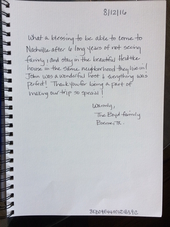 8/12/16
What a blessing to be able to come to
Nashville after 6 long years of not seeing
family, and stay in the beautiful
house in the same neighborhood they live in!
John was a wonderful host & everything was
perfect! Thank you for being a part of
making our trip so special!
Warmly,
The Boyd Family